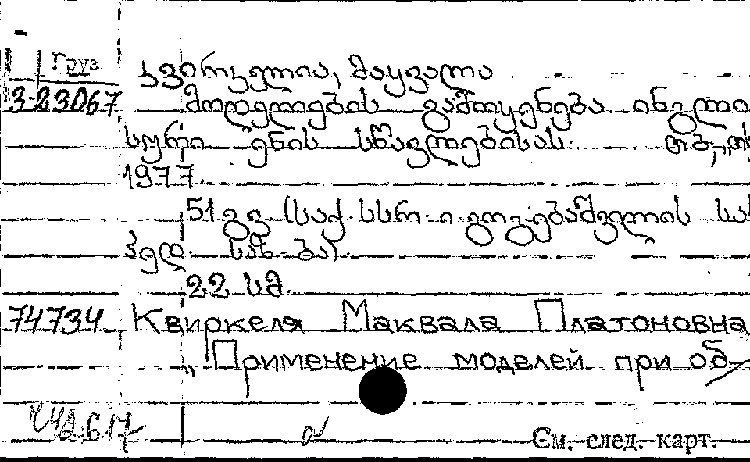 Груз
კვირკელია, მაყვალა
3-23067 მოდელების გამოყენება ინგლი
სური ენის სწავლებისას. თბ.,
1977.
51 გვ (საქ. სსრ ი. გოგებაშვილის სახ.
პედ. საზ-ბა)
22 სმ.
74734 Квиркеля Маквала Платоновна
„Применение моделей при об-
См. след. карт.